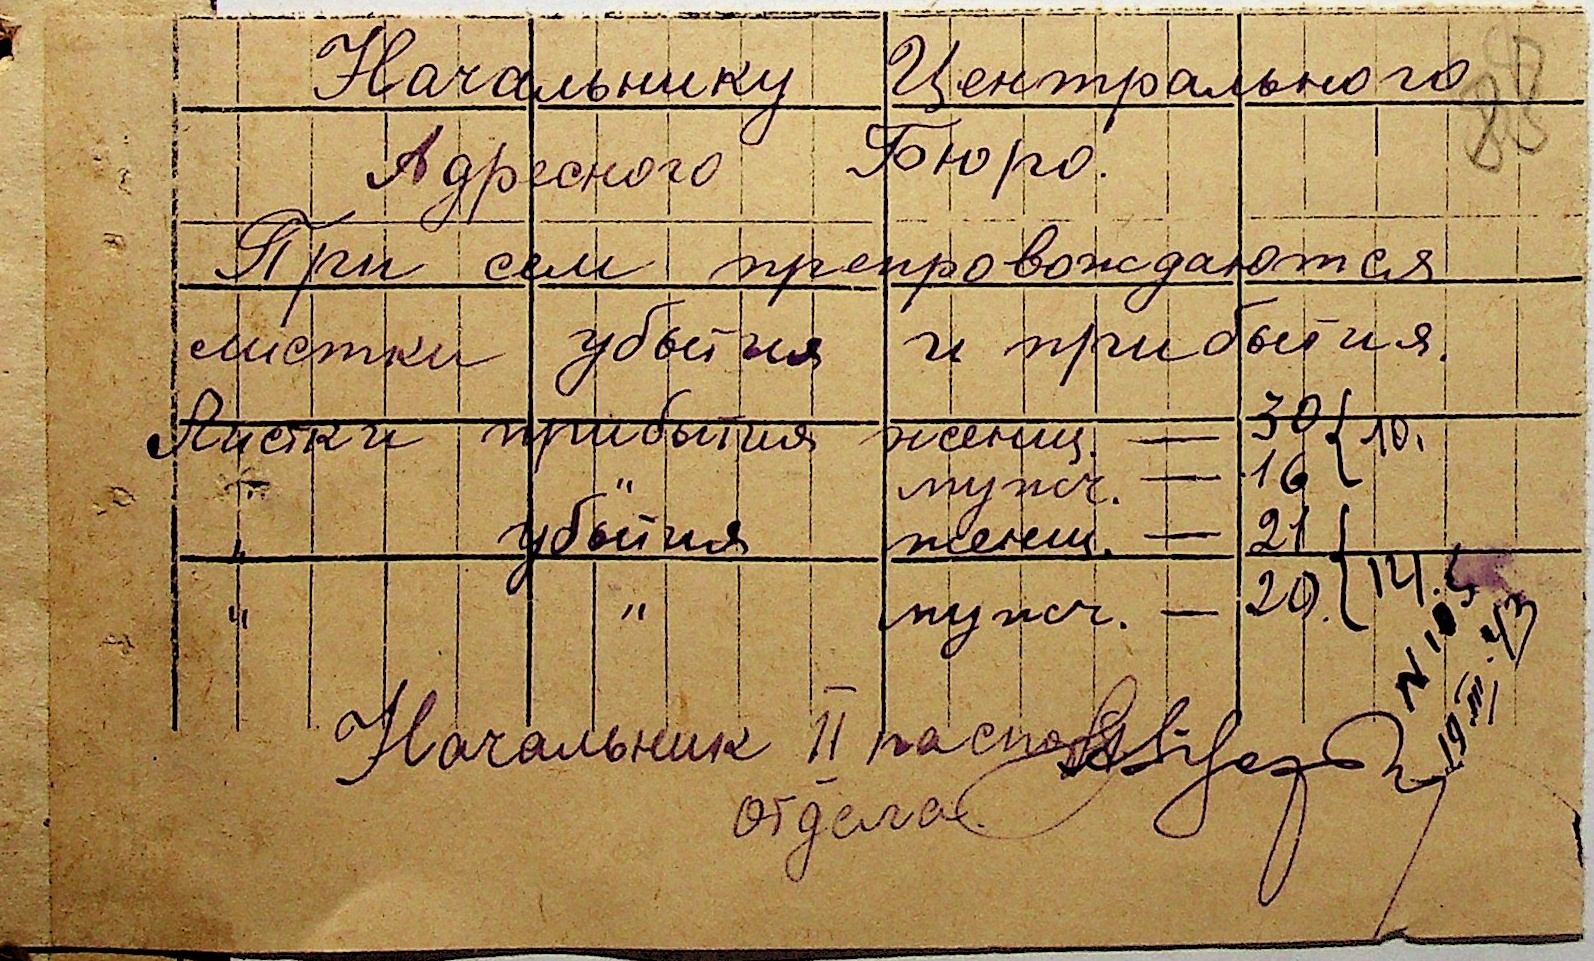 88
Начальнику Центрального
Адресного Бюро.
При сем препровождаются
листки убытия и прибытия.
Листки прибытия женщ. — 30 } 10.
" " мужч. — 16
" убытия женщ. — 21
" " мужч. — 20.
N 105
19 III 43
Начальник II паспорт
отдела